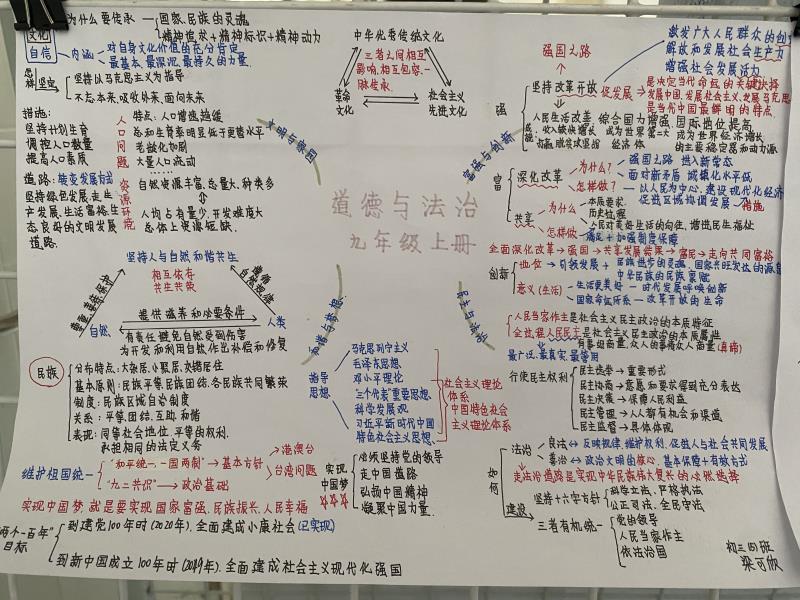 为什么要传承 — 国家、民族的灵魂
精神追求+精神标识+精神动力
文化
自信
内涵
对自身文化价值的充分肯定
最基本 最深沉 最持久的力量
怎样坚定
坚持以马克思主义为指导
不忘本来,吸收外来,面向未来
措施:
坚持计划生育
调控人口数量
提高人口素质
人口问题
特点:人口增速趋缓
总和生育率明显低于更替水平
老龄化加剧
大量人口流动
道路:转变发展方式
坚持绿色发展,走生
产发展,生活富裕,生
态良好的文明发展
道路.
资源环境
自然资源丰富,总量大,种类多
人均占有量少,开发难度大
总体上资源短缺.
坚持人与自然和谐共生
相互依存
共生共荣
自然
人类
提供滋养和必要条件
有责任避免自然受到伤害
为开发和利用自然作出补偿和修复
民族
分布特点:大杂居,小聚居,交错居住
基本原则:民族平等,民族团结,各民族共同繁荣
制度:民族区域自治制度
关系:平等,团结,互助,和谐
表现:同等社会地位,平等的权利,
承担相同的法定义务
维护祖国统一
"和平统一,一国两制"→基本方针
"九二共识"→政治基础
港澳台
台湾问题
实现中国梦,就是要实现国家富强,民族振兴,人民幸福
"两个一百年"
目标
到建党100年时(2020年),全面建成小康社会(已实现)
到新中国成立100年时(2049年),全面建成社会主义现代化强国
中华优秀传统文化
三者之间相互
影响,相互包容,一
脉传承.
革命
文化
社会主义
先进文化
文明与家园
富强与创新
道德与法治
九年级上册
和谐与梦想
民主与法治
指导
思想
马克思列宁主义
毛泽东思想
邓小平理论
"三个代表"重要思想
科学发展观
习近平新时代中国
特色社会主义思想
社会主义理论
体系
中国特色社会
主义理论体系
实现
中国梦
必须坚持党的领导
走中国道路
弘扬中国精神
凝聚中国力量
强国之路
激发广大人民群众的创
解放和发展社会生产力
增强社会发展活力
强
坚持改革开放
促发展
是决定当代命运的关键抉择
发展中国,发展社会主义,发展马克思
是当代中国最鲜明的特点.
人民生活改善 综合国力增强 国际地位提高
成为世界第二大
经济体
成为世界经济增长
的主要稳定器和动力源
富
深化改革
为什么?
强国之路 进入新常态
面对新矛盾 城镇化水平低
怎样做?
以人民为中心,建设现代化经济
促进区域协调发展
措施
共享
为什么
本质要求
历史过程
人民对美好生活的向往,增进民生福祉
怎样做
满足+加强制度保障
全面深化改革→强国→共享发展成果→富民→走向共同富裕
创新
地位→引领发展+民族进步的灵魂,国家兴旺发达的源泉
中华民族的民族禀赋
意义(生活)
生活更美好 — 时代发展呼唤创新
国家命运所系 — 改革开放的生命
人民当家作主是社会主义民主政治的本质特征
全过程人民民主是社会主义民主政治的本质属性
有事好商量,众人的事情众人商量(真谛)
最广泛,最真实,最管用
行使民主权利
民主选举→重要形式
民主协商→意愿和要求得到充分表达
民主决策→保障人民利益
民主管理→人人都有机会和渠道
民主监督→具体体现
如何
建设
法治
良法↔反映规律,维护权利,促进人与社会共同发展
善治↔政治文明的核心,基本保障+有效方式
走法治道路是实现中华民族伟大复兴的必然选择
坚持十六字方针
科学立法,严格执法
公正司法,全民守法
三者有机统一
党的领导
人民当家作主
依法治国
初三四班
梁可欣